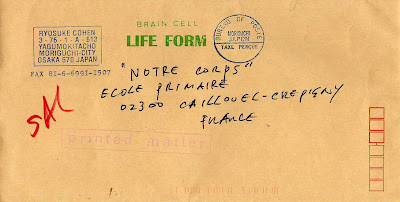 RYOSUKE COHEN
3-76-1-A-613
YAGUMOKITACHO
MORIGUCHI-CITY
OSAKA 570 JAPAN
FAX 81-6-6991-1907
BRAIN CELL
LIFE FORM
BUREAU DE POSTE
MORIGUCHI
JAPON
TAXE PERCUE
"NOTRE CORPS"
ECOLE PRIMAIRE
02300 CAILLOUEL-CREPIGNY
FRANCE
SAL
printed matter